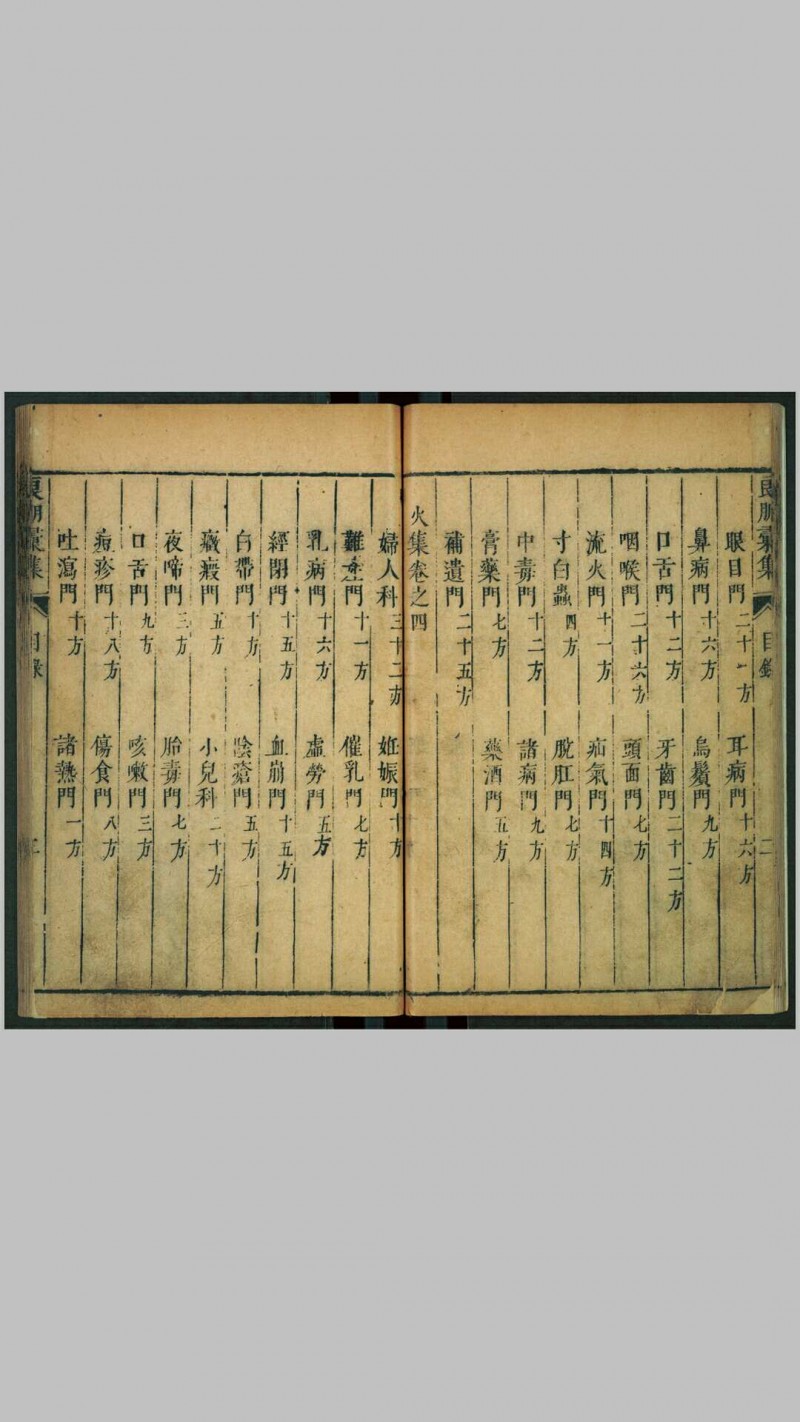 眼目門二十一方 耳病門十六方
鼻病門十六方 烏鬚門九方
口舌門十二方 牙齒門二十二方
咽喉門二十六方 頭面門七方
流火門十一方 疝氣門十四方
寸白蟲四方 脫肛門七方
中毒門十二方 諸病門九方
膏藥門七方 藥酒門五方
補遺門二十五方
火集卷之四
婦人科三十二方 妊娠門十方
難產門十一方 催乳門七方
乳病門十六方 虛勞門五方
經閉門十五方 血崩門十五方
白帶門十方 陰瘡門五方
癥瘕門五方 小兒科二十方
夜啼門三方 胎毒門七方
口舌門九方 咳嗽門三方
痘疹門十八方 傷食門八方
吐瀉門十方 諸熱門一方
目錄